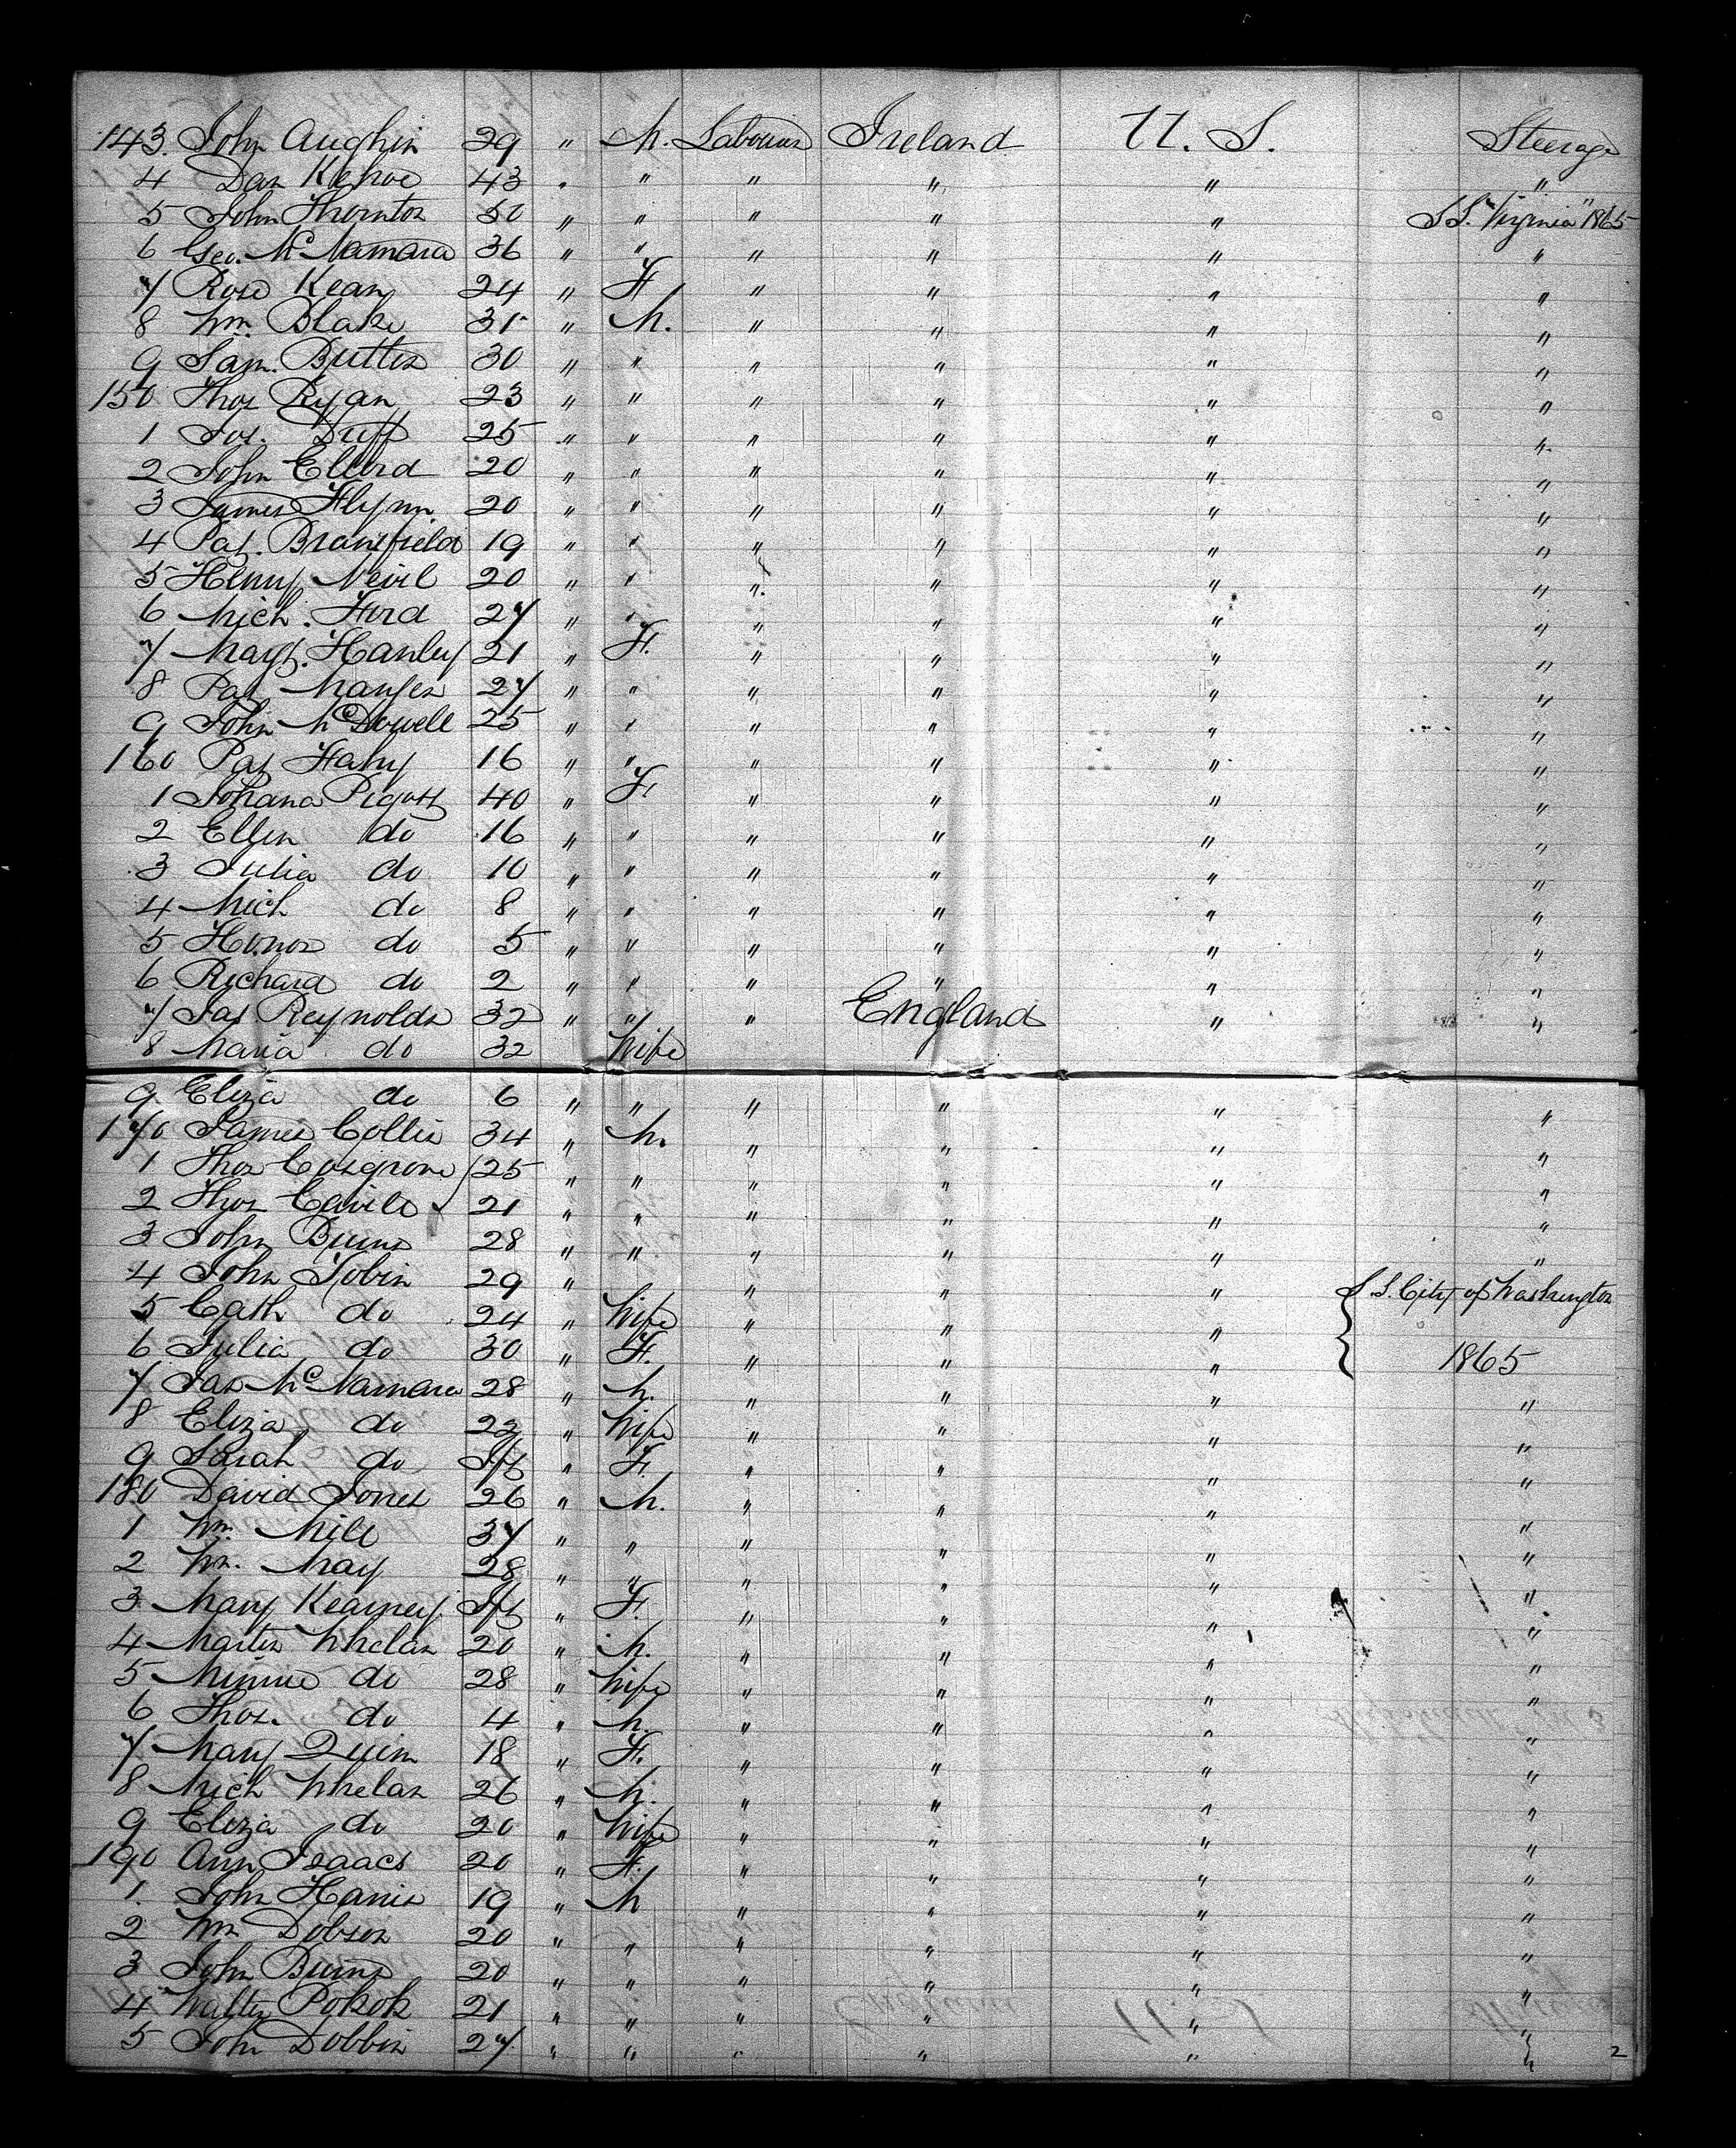 143. John Aughin 29 " M. Labourer Ireland U. S. Steerage
4 Dan Kehoe 43 " " " " " "
5 John Thornton 50 " " " " " S S. "Virginia" 1865
6 Geo. McNamara 36 " " " " " "
7 Rose Kean 24 " F " " " "
8 Wm. Blake 31 " M. " " " "
9 Sam. Butler 30 " " " " " "
150 Thos Ryan 23 " " " " " "
1 Jos. Duff 25 " " " " " "
2 John Ellerd 20 " " " " " "
3 James Flynn 20 " " " " " "
4 Pat. Bransfield 19 " " " " " "
5 Henry Nevil 20 " " " " " "
6 Mich. Ford 27 " " " " " "
7 Magt. Hanley 21 " F. " " " "
8 Pat Manyen 27 " " " " " "
9 John McDowell 25 " " " " " "
160 Pat Fahy 16 " " " " " "
1 Johana Pigott 40 " F. " " " "
2 Ellen do 16 " " " " " "
3 Julia do 10 " " " " " "
4 Mich do 8 " " " " " "
5 Honor do 5 " " " " " "
6 Richard do 2 " " " " " "
7 Jas. Reynolds 32 " " " England " "
8 Maria do 32 Wife
9 Eliza do 6 " " " " " "
170 James Collis 34 " M. " " " "
1 Thos Cosgrove 25 " " " " " "
2 Thos Cavile 21 " " " " " "
3 John Burns 28 " " " " " "
4 John Tobin 29 " " " " S S. City of Washington
5 Cath do 24 " Wife " " "
6 Julia do 30 " F. " " " 1865
7 Jas McNamara 28 " M. " " " "
8 Eliza do 22 " Wife " " " "
9 Sarah do Inft " F. " " " "
180 David Jones 26 " M. " " " "
1 Wm. Mile 37 " " " " " "
2 Wm. May 28 " " " " " "
3 Mary Kearney Inft " F. " " " "
4 Martin Whelan 20 " M. " " " "
5 Minnie do 28 " Wife " " " "
6 Thos. do 4 " M. " " " "
7 Mary Quinn 18 " F. " " " "
8 Mich Whelan 26 " M. " " " "
9 Eliza do 20 " Wife " " " "
190 Ann Isaacs 20 " F. " " " "
1. John Harris 19 " M " " " "
2 Wm Dobson 20 " " " " " "
3 John Burns 20 " " " " " "
4 Walter Pokok 21 " " " " " "
5 John Dobbin 27. " " " " " " 2